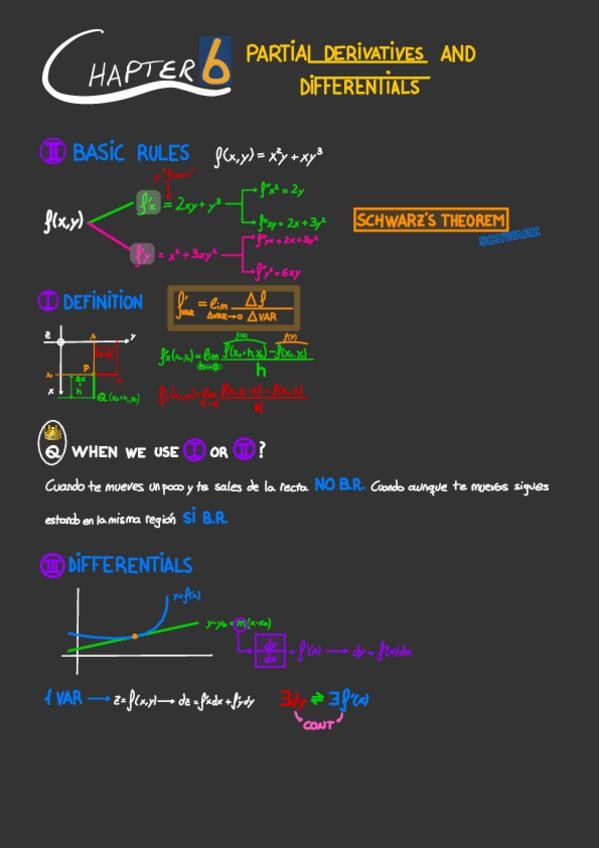 CHAPTER 6 PARTIAL DERIVATIVES AND
DIFFERENTIALS
II BASIC RULES f(x,y) = x²y + xy³
f(x,y)
f'x = 2xy + y³
f''x² = 2y
f''xy = 2x + 3y²
f'y = x² + 3xy²
f''yx = 2x + 3y²
f''y² = 6xy
SCHWARZ'S THEOREM
SCHWARZ
I DEFINITION
f'VAR = lim ΔVAR→0 Δf / ΔVAR
z y x
x₀ P Δx h
Q (x₀+h, y₀)
f'x(x₀,y₀) = lim h→0 f(x₀+h, y₀) − f(x₀,y₀) / h
K
Q. WHEN WE USE I OR II?
Cuando te mueves un poco y te sales de la recta NO B.R. Cuando aunque te muevas sigues
estando en la misma región SI B.R.
III DIFFERENTIALS
y=f(x)
y−y₀ = m(x−x₀)
dy/dx = f'(x) → dy = f'(x)dx
1 VAR → z = f(x,y) → dz = f'x dx + f'y dy ∃dy ⇌ ∃f'(x)
CONT